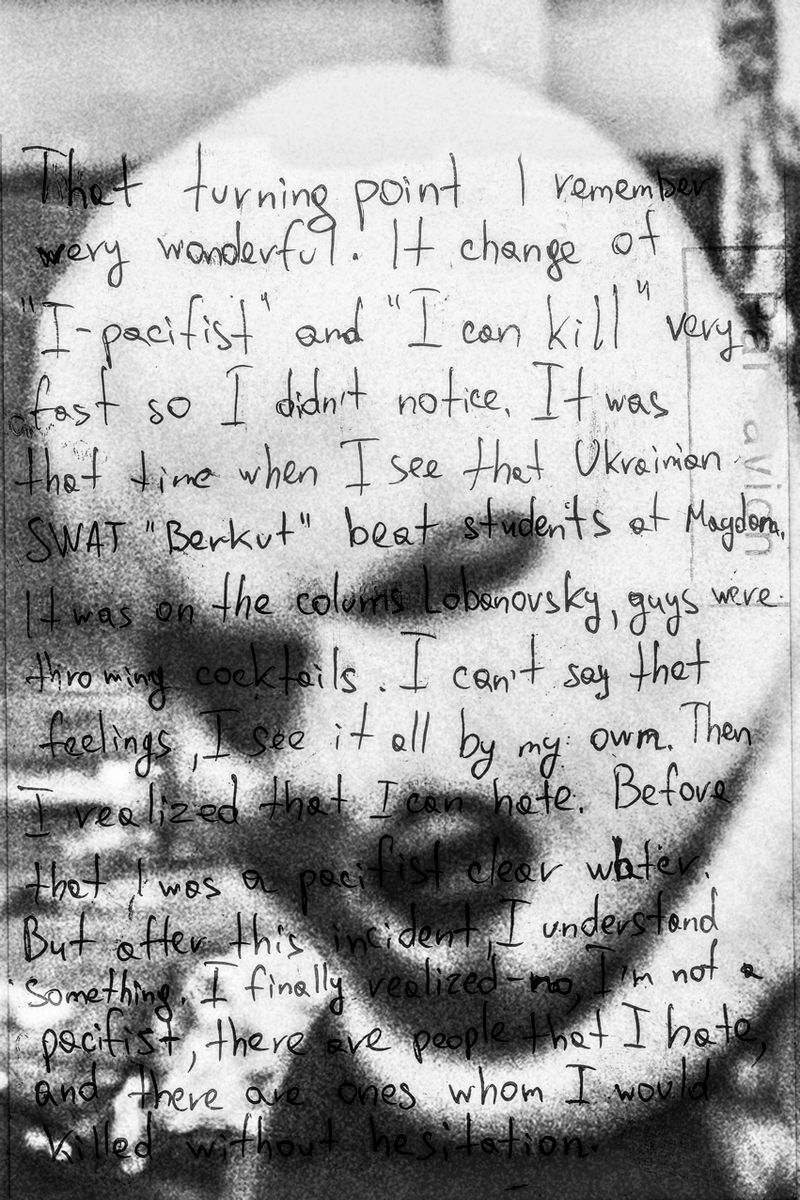 That turning point I remember
wery wonderful. It change of
"I-pacifist" and "I can kill" very
fast so I didn't notice. It was
that time when I see that Ukrainian
SWAT "Berkut" beat students at Magdan.
It was on the colums Lobanovsky, guys were
throwing cocktails. I can't say that
feelings, I see it all by my own. Then
I realized that I can hate. Before
that I was a pacifist clear water.
But after this incident, I understand
something. I finally realized - no, I'm not a
pacifist, there are people that I hate,
and there are ones whom I would
killed without hesitation.
Par avion